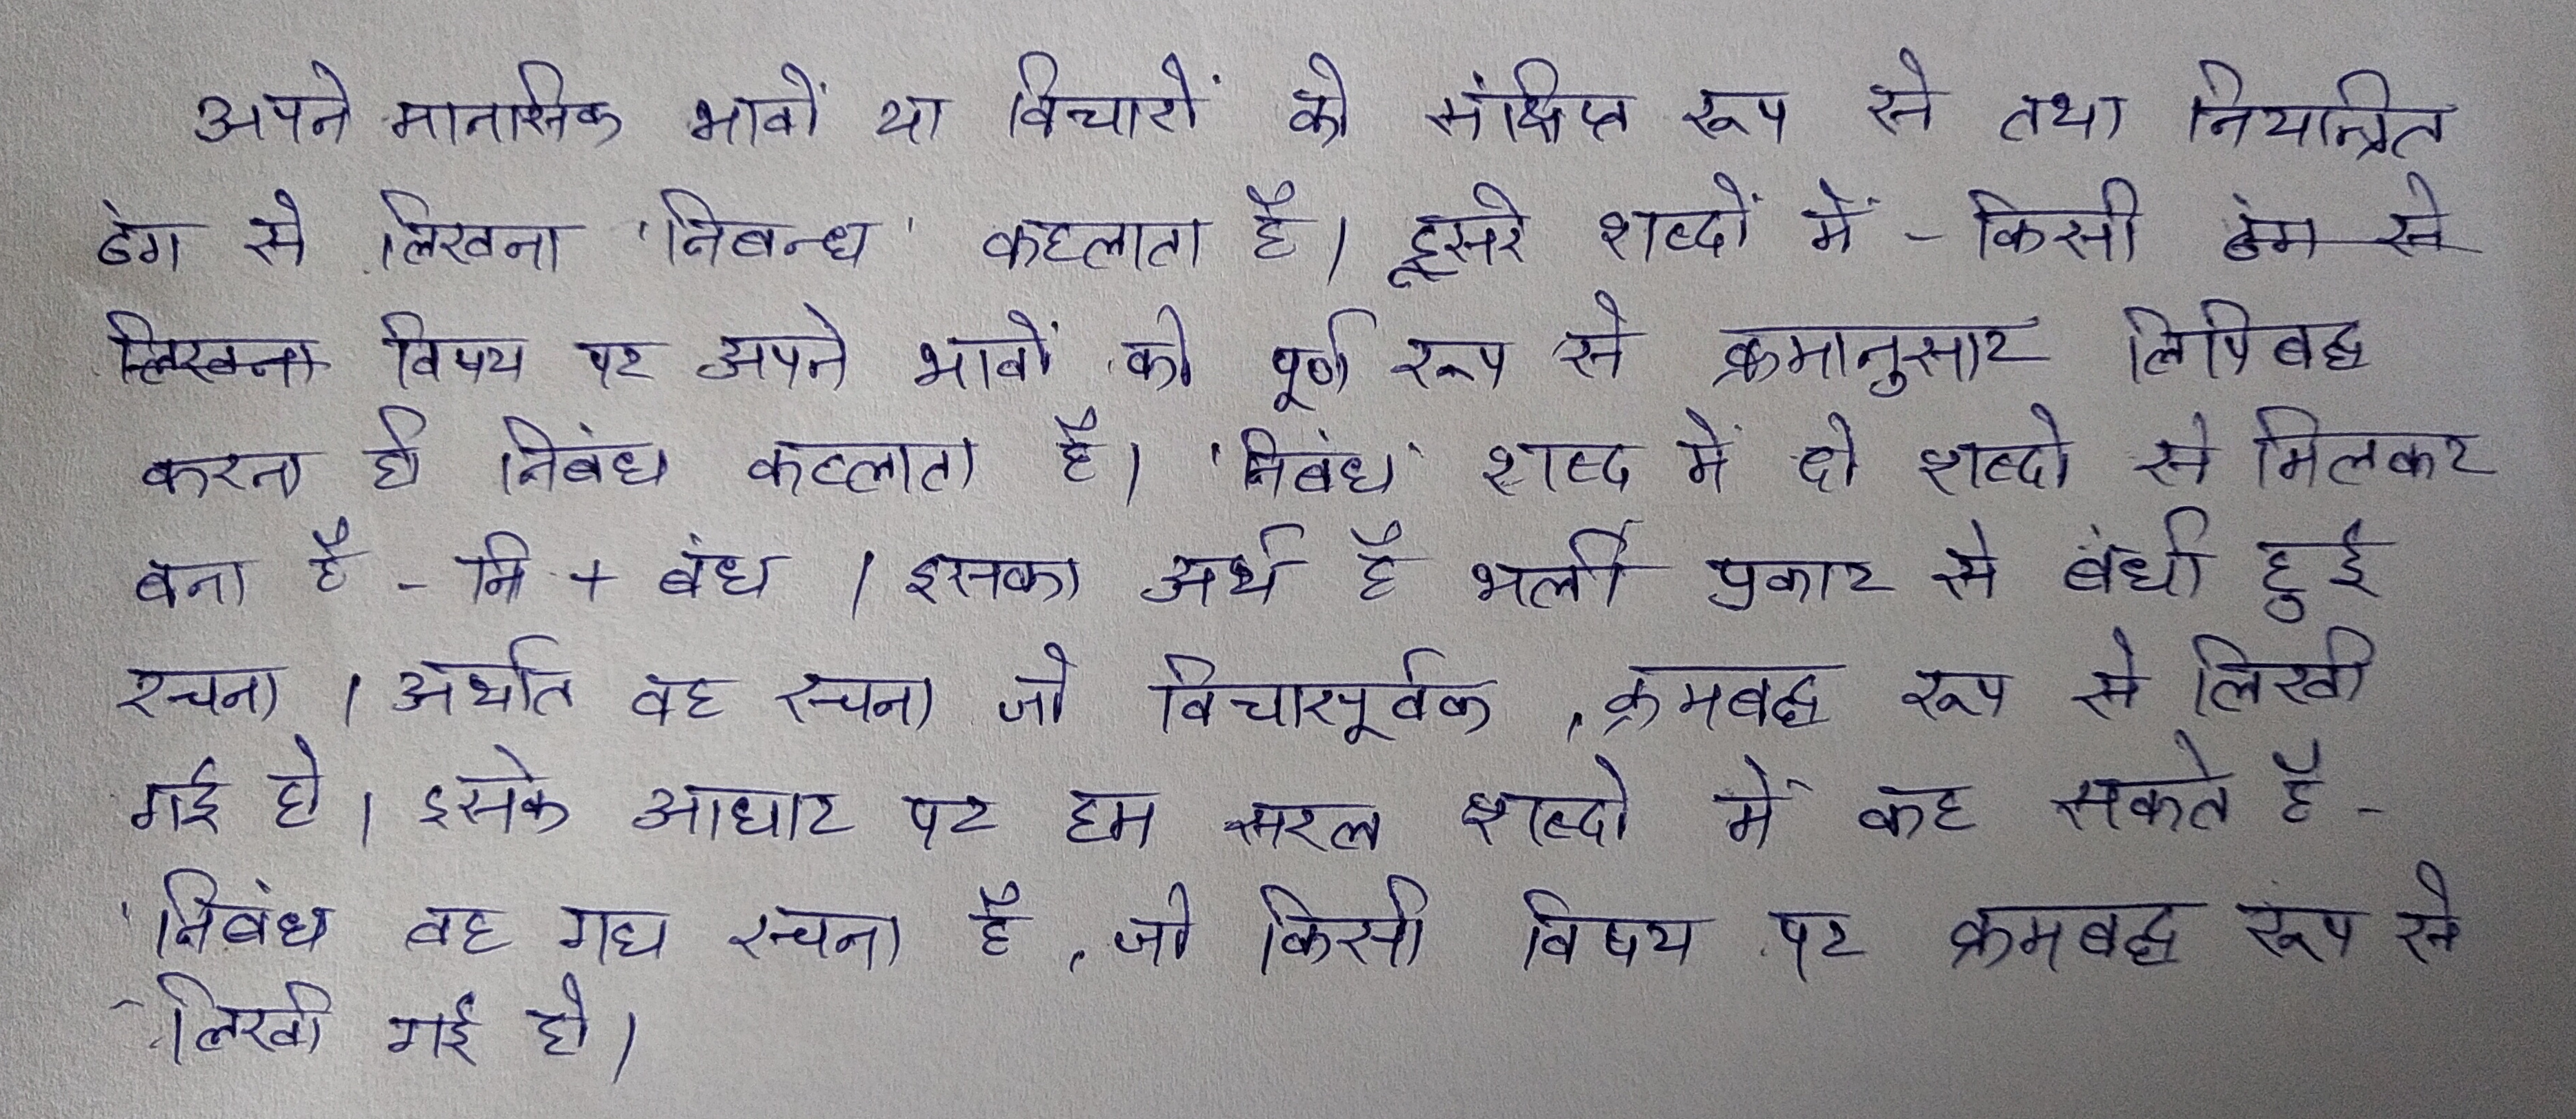 अपने मानसिक भावों या विचारों को संक्षिप्त रूप से तथा नियन्त्रित
ढंग से लिखना 'निबन्ध' कहलाता है। दूसरे शब्दों में - किसी ढंग से
लिखना विषय पर अपने भावों को पूर्ण रूप से क्रमानुसार लिपिबद्ध
करना ही निबंध कहलाता है। 'निबंध' शब्द में दो शब्दो से मिलकर
बना है - नि + बंध । इसका अर्थ है भली प्रकार से बंधी हुई
रचना । अर्थात वह रचना जो विचारपूर्वक , क्रमबद्ध रूप से लिखी
गई हो । इसके आधार पर हम सरल शब्दो में कह सकते है -
'निबंध वह गद्य रचना है , जो किसी विषय पर क्रमबद्ध रूप से
लिखी गई हो।